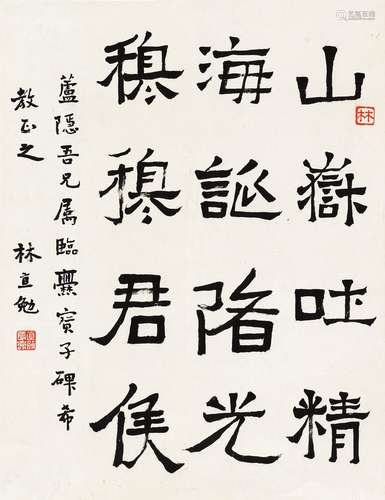 山嶽吐精
海誕陼光
穆穆君侯
蘆隱吾兄属臨爨寳子碑希
教正之 林宣勉
林